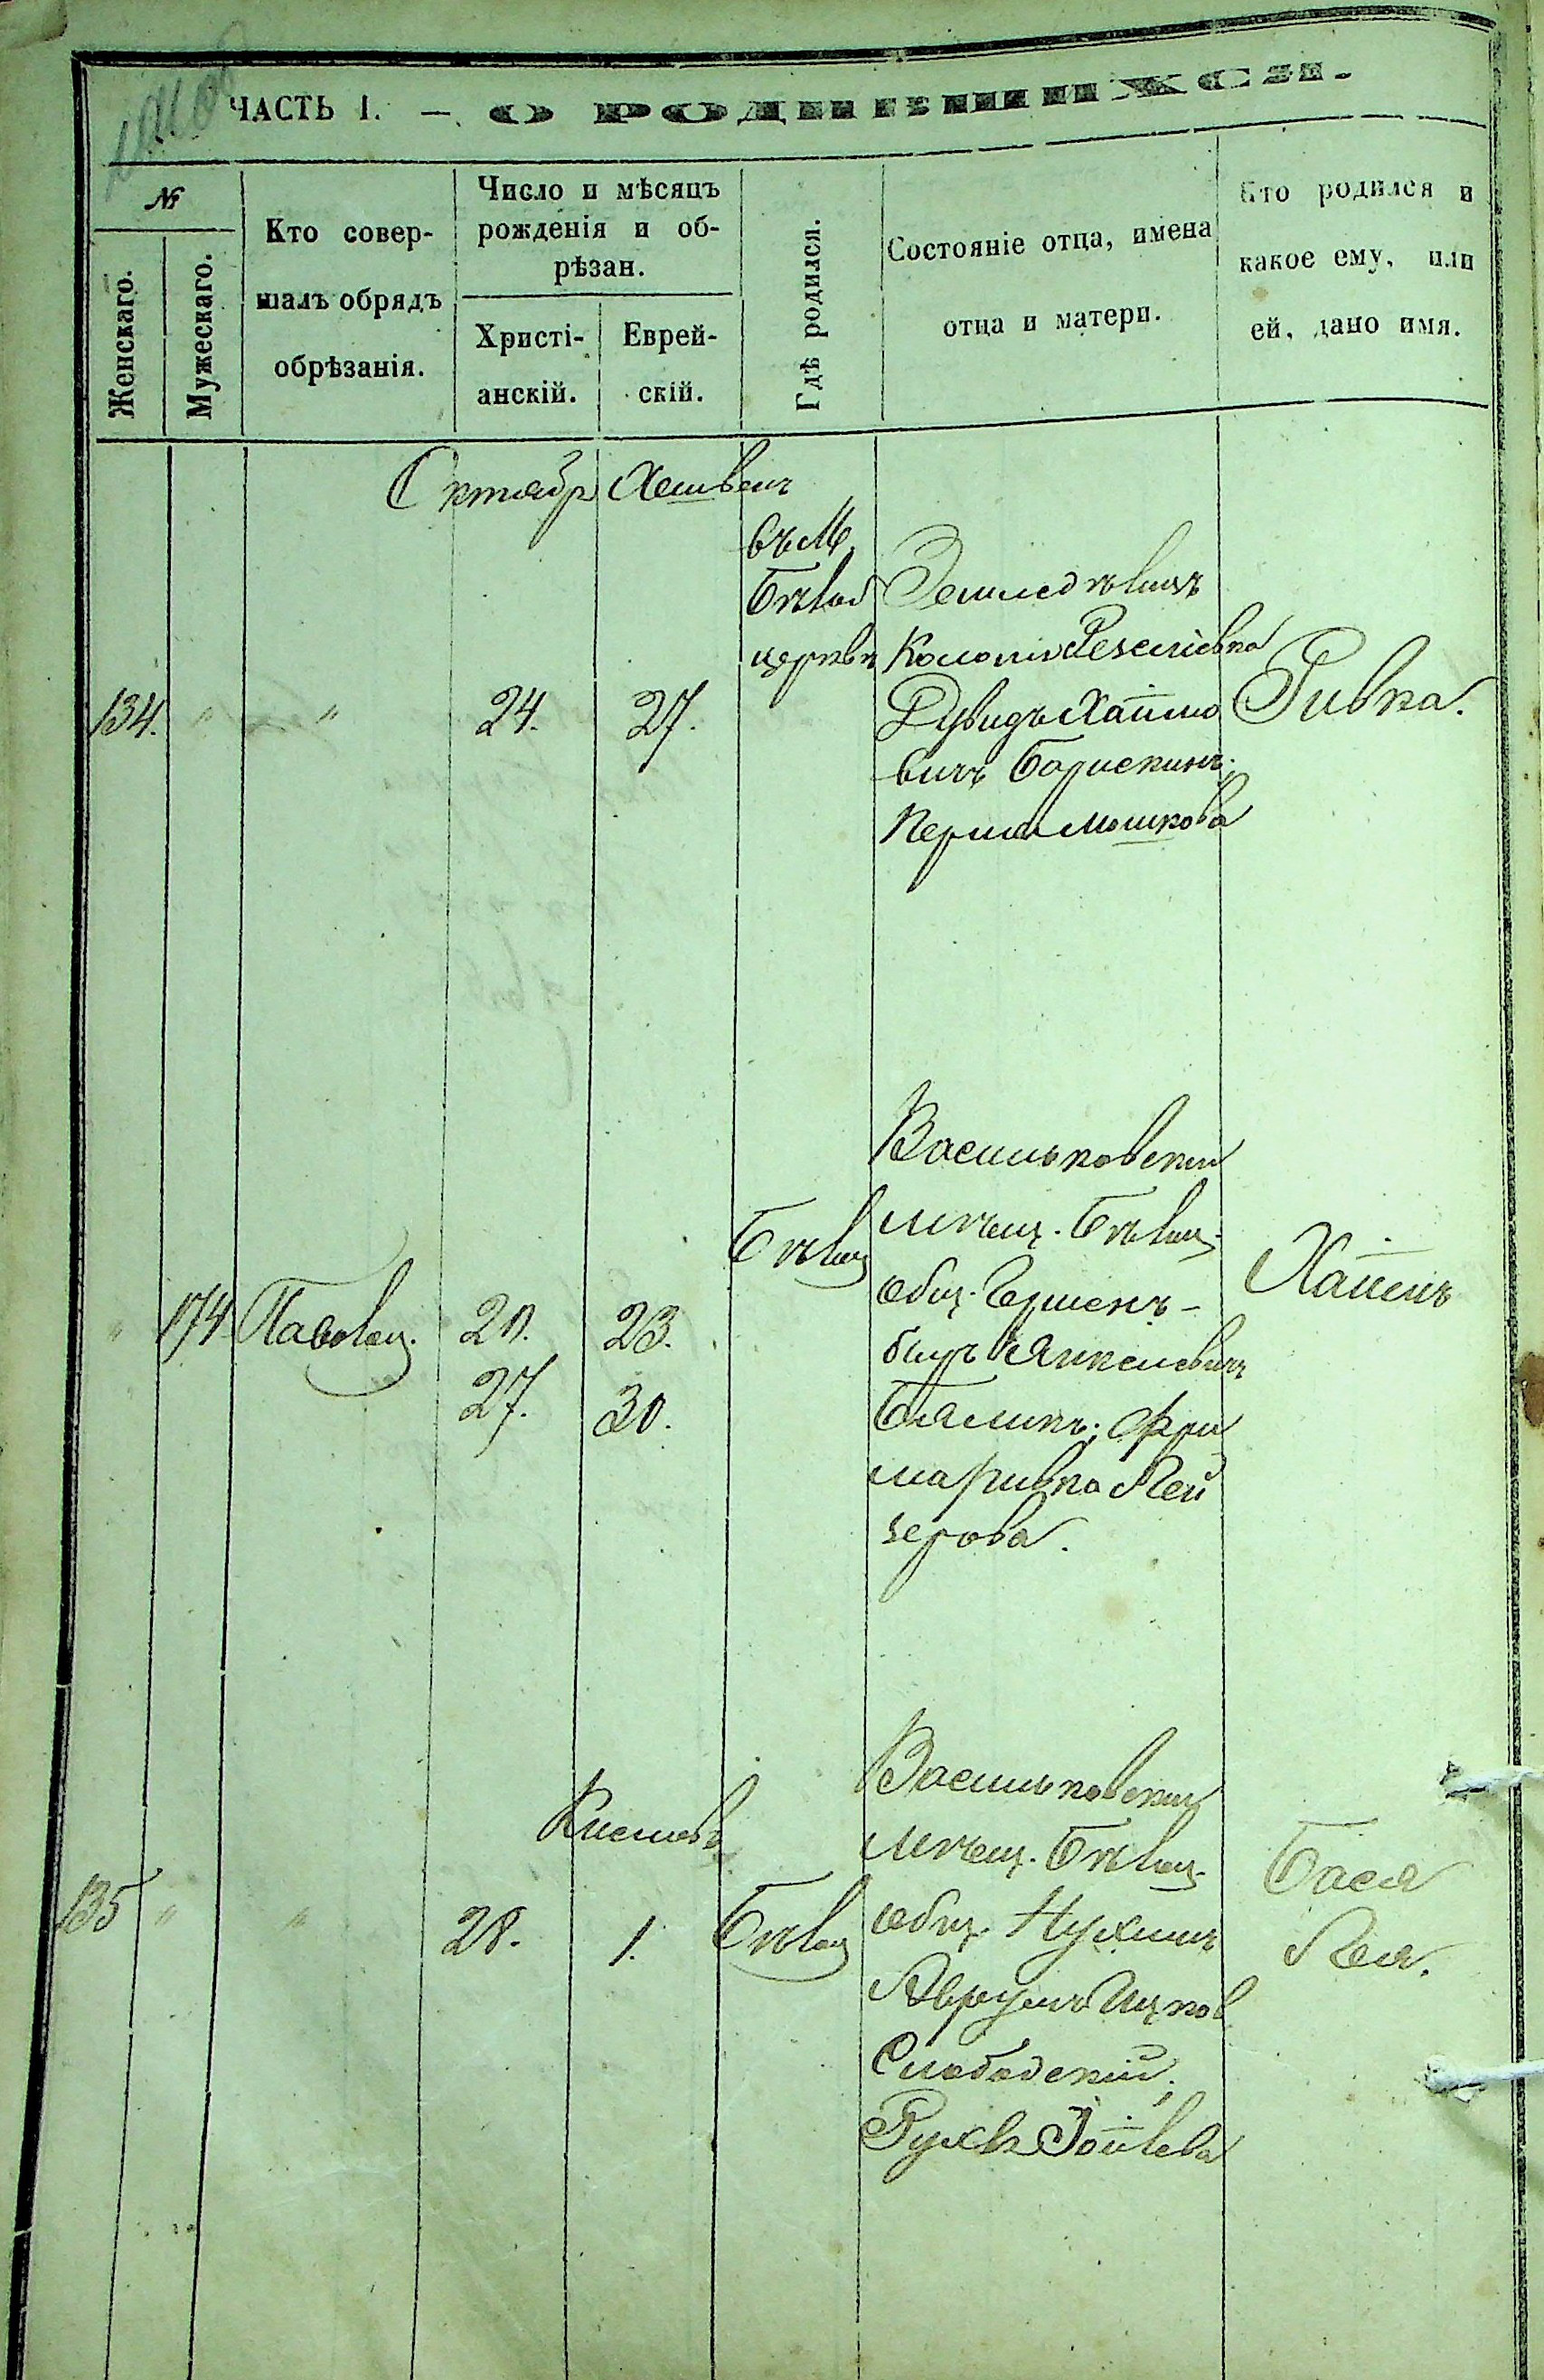 ЧАСТЬ I. — О РОДИВШИХСЯ.
№
Женскаго.
Мужескаго.
Кто совер-
шалъ обрядъ
обрѣзанія.
Число и мѣсяцъ
рожденія и об-
рѣзан.
Христі-
анскій.
Еврей-
скій.
Гдѣ родился.
Состояніе отца, имена
отца и матери.
Кто родился и
какое ему, или
ей, дано имя.
Октябр Хешвенъ
въ М.
Бѣлой
церкви
134. " " 24. 27.
Земледѣлецъ
Колоніи
Дувидъ Хаимо
вичъ Борискинъ;
Перля Мошкова
Ривка.
" 174 20. 23.
27. 30.
Бѣлоц
Васильковскій
мѣщ. Бѣлоц.
общ. Гершенъ-
беръ Янкелевичъ
Бяликъ; Фри
маривка Лей
зерова.
Хаимъ
Кислевъ
135 " " 28. 1. Бѣлоц
Васильковскій
мѣщ. Бѣлоц.
общ. Нухимъ
Аврумъ Ицков
Слободскій;
Рухля
Бася
Лея.